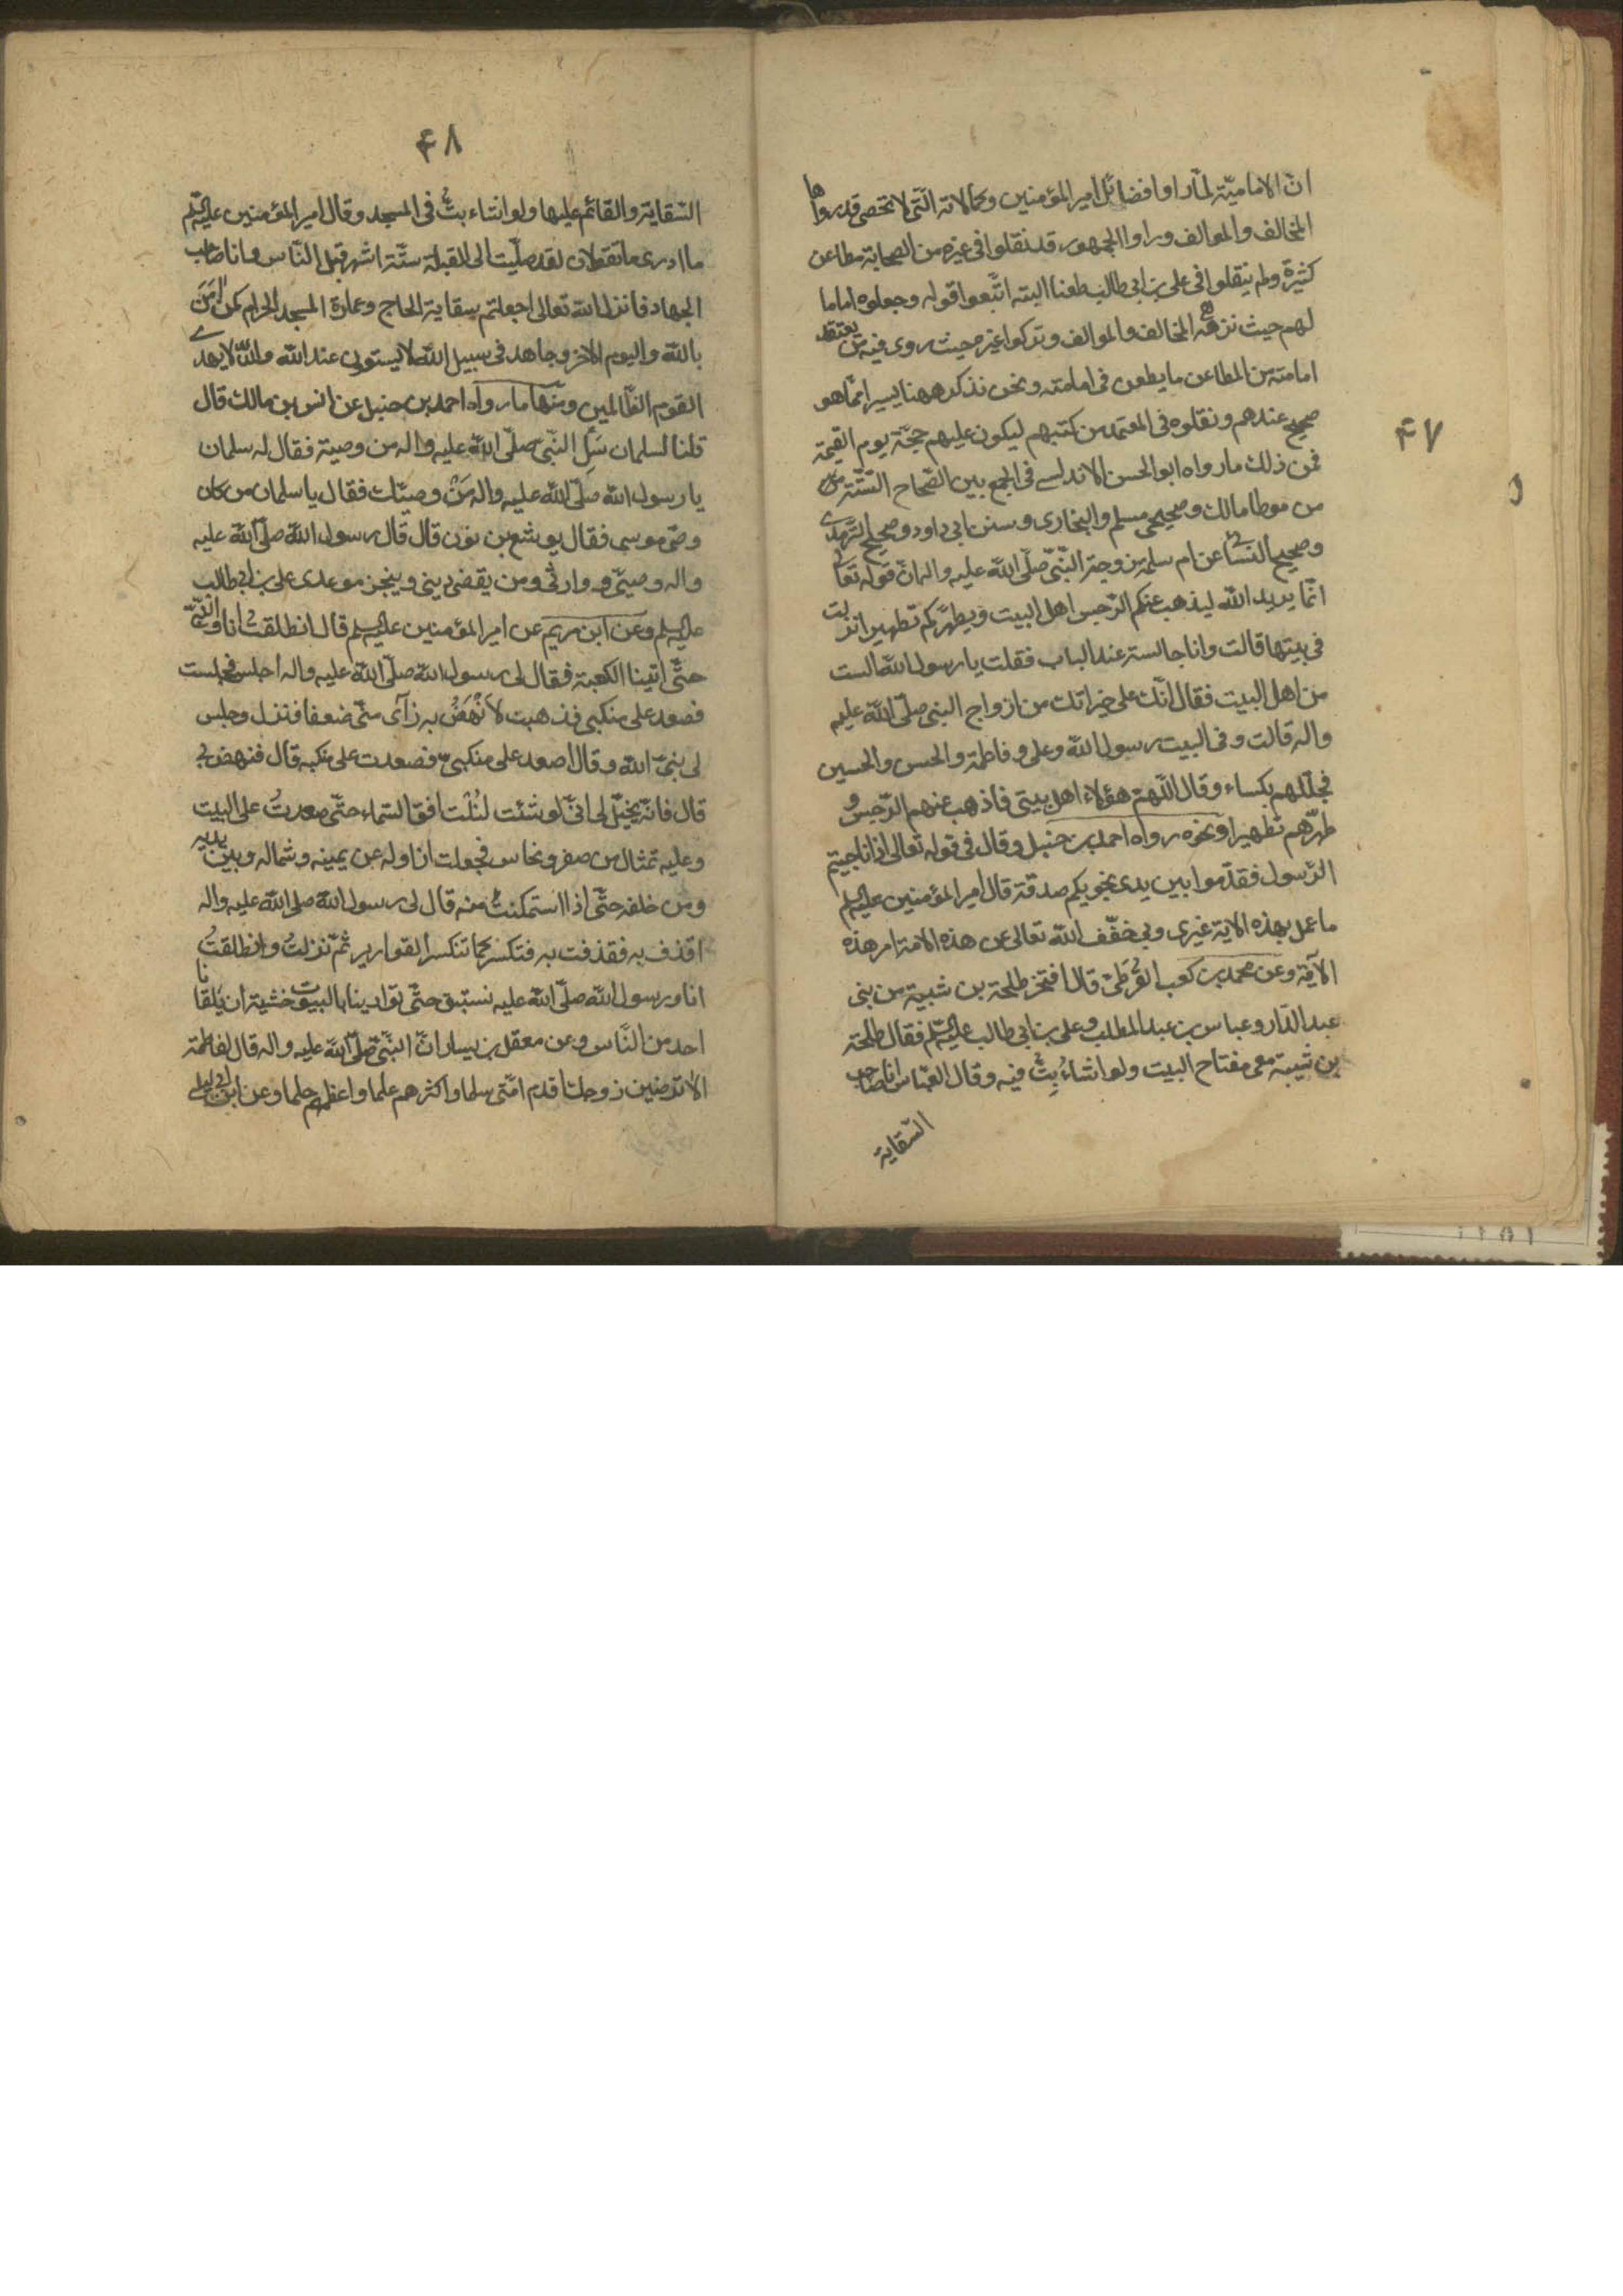 ۴۷
انّ الاماميّة لمّا راوا فضائل امير المؤمنين وكمالاته الّتى لا تحصى قد رواها
المخالف والموالف وراوا الجمهور قد نقلوا فى غيره من الصحابة مطاعن
كثيرة ولم ينقلوا فى على بن ابى طالب طعنا البتّه اتّبعوا قوله وجعلوه اماما
لهم حيث نزهه المخالف والموالف وتركوا غيره حيث روى فيه من يعتقد
امامته من المطاعن ما يطعن فى امامته ونحن نذكر ههنا يسيرا ممّا هو
صحيح عندهم ونقلوه فى المعتمد من كتبهم ليكون عليهم حجّة يوم القيمة
فمن ذلك ما رواه ابو الحسن الاندلسے فى الجمع بين الصّحاح السّتّة
من موطا مالك وصحيحى مسلم والبخارى وسنن ابى داود وصحيح التّرمذے
وصحيح النسائے عن ام سلمة زوجة النّبىّ صلّى اللّه عليه واله انّ قوله تعالى
انّما يريد اللّه ليذهب عنكم الرّجس اهل البيت ويطهّركم تطهيرا نزلت
فى بيتها قالت وانا جالسة عند الباب فقلت يا رسول اللّه الست
من اهل البيت فقال انّك على خير انّك من ازواج النبى صلّى اللّه عليه
واله قالت وفى البيت رسول اللّه وعلى وفاطمة والحسن والحسين
فجلّلهم بكساء وقال اللّهمّ هؤلاء اهل بيتى فاذهب عنهم الرّجس و
طهّرهم تطهيرا ونحوه رواه احمد بن حنبل وقال فى قوله تعالى اذا ناجيتم
الرّسول فقدّموا بين يدى نجويكم صدقة قال امير المؤمنين عليه السلم
ما عمل بهذه الاية غيرى وبى خفّف اللّه تعالى عن هذه الامة امر هذه
الآية وعن محمد بن كعب القُرَظىّ قال افتخر طلحة بن شيبة من بنى
عبد الدّار وعباس بن عبد المطلب وعلى بن ابى طالب عليه السّلم فقال طلحة
بن شيبة معى مفتاح البيت ولو اشاءُ بِتُّ فيه وقال العبّاس انا صاحب
السّقاية
۴۸
السّقاية والقائم عليها ولو اشاء بتُّ فى المسجد وقال امير المؤمنين عليه السّلم
ما ادرى ما تقولان لقد صلّيت الى القبلة ستّة اشهر قبل النّاس وانا صاحب
الجهاد فانزل اللّه تعالى اجعلتم سقاية الحاج وعمارة المسجد الحرام كمن امَنَ
باللّه واليوم الاخر وجاهد فى سبيل اللّه لا يستون عند اللّه واللّه لا يهدے
القوم الظّالمين ومنها ما رواه احمد بن حنبل عن انس بن مالك قال
قلنا لسلمان سَلِ النّبىّ صلّى اللّه عليه واله من وصيه فقال له سلمان
يا رسول اللّه صلّى اللّه عليه واله مَنْ وصيّك فقال يا سلمان من كان
وصىّ موسى فقال يوشع بن نون قال قال رسول اللّه صلّى اللّه عليه
واله وصيّى و وارثى ومن يقضى دينى وينجز موعدى على بن ابى طالب
عليه السلم وعن ابن مريم عن امير المؤمنين عليه السلم قال انطلقتُ انا والنّبىّ
حتّى اتينا الكعبة فقال لى رسول اللّه صلّى اللّه عليه واله اجلس فجلست
فصعد على منكبى فذهبت لأَنْهَضُ به فرآى منّى ضعفا فنزل وجلس
لى نبىّ اللّه وقال اصعد على منكبىّ فصعدت على منكبه قال فنهض بى
قال فانّه يخيّل لى انّى لو شئت لنُلْت افق السّماء حتّى صعدتُ على البيت
وعليه تمثال من صفر ونحاس فجعلت ازاوله عن يمينه وشماله وبين يديه
ومن خلفه حتّى اذا استمكنتُ منه قال لى رسول اللّه صلى اللّه عليه واله
اقذف به فقذفت به فتكسّر كما تنكسر القوارير ثمّ نزلتُ وانطلقتُ
انا ورسول اللّه صلّى اللّه عليه نستبق حتّى توارينا بالبيوت خشية ان يَلقانا
احد من النّاس وعن معقل بن يسار انّ النّبىّ صلّى اللّه عليه واله قال لفاطمة
الا ترضين زوجك اقدم امّتى سلما واكثرهم علما واعظمهم حلما وعن ابن ابى ليلے